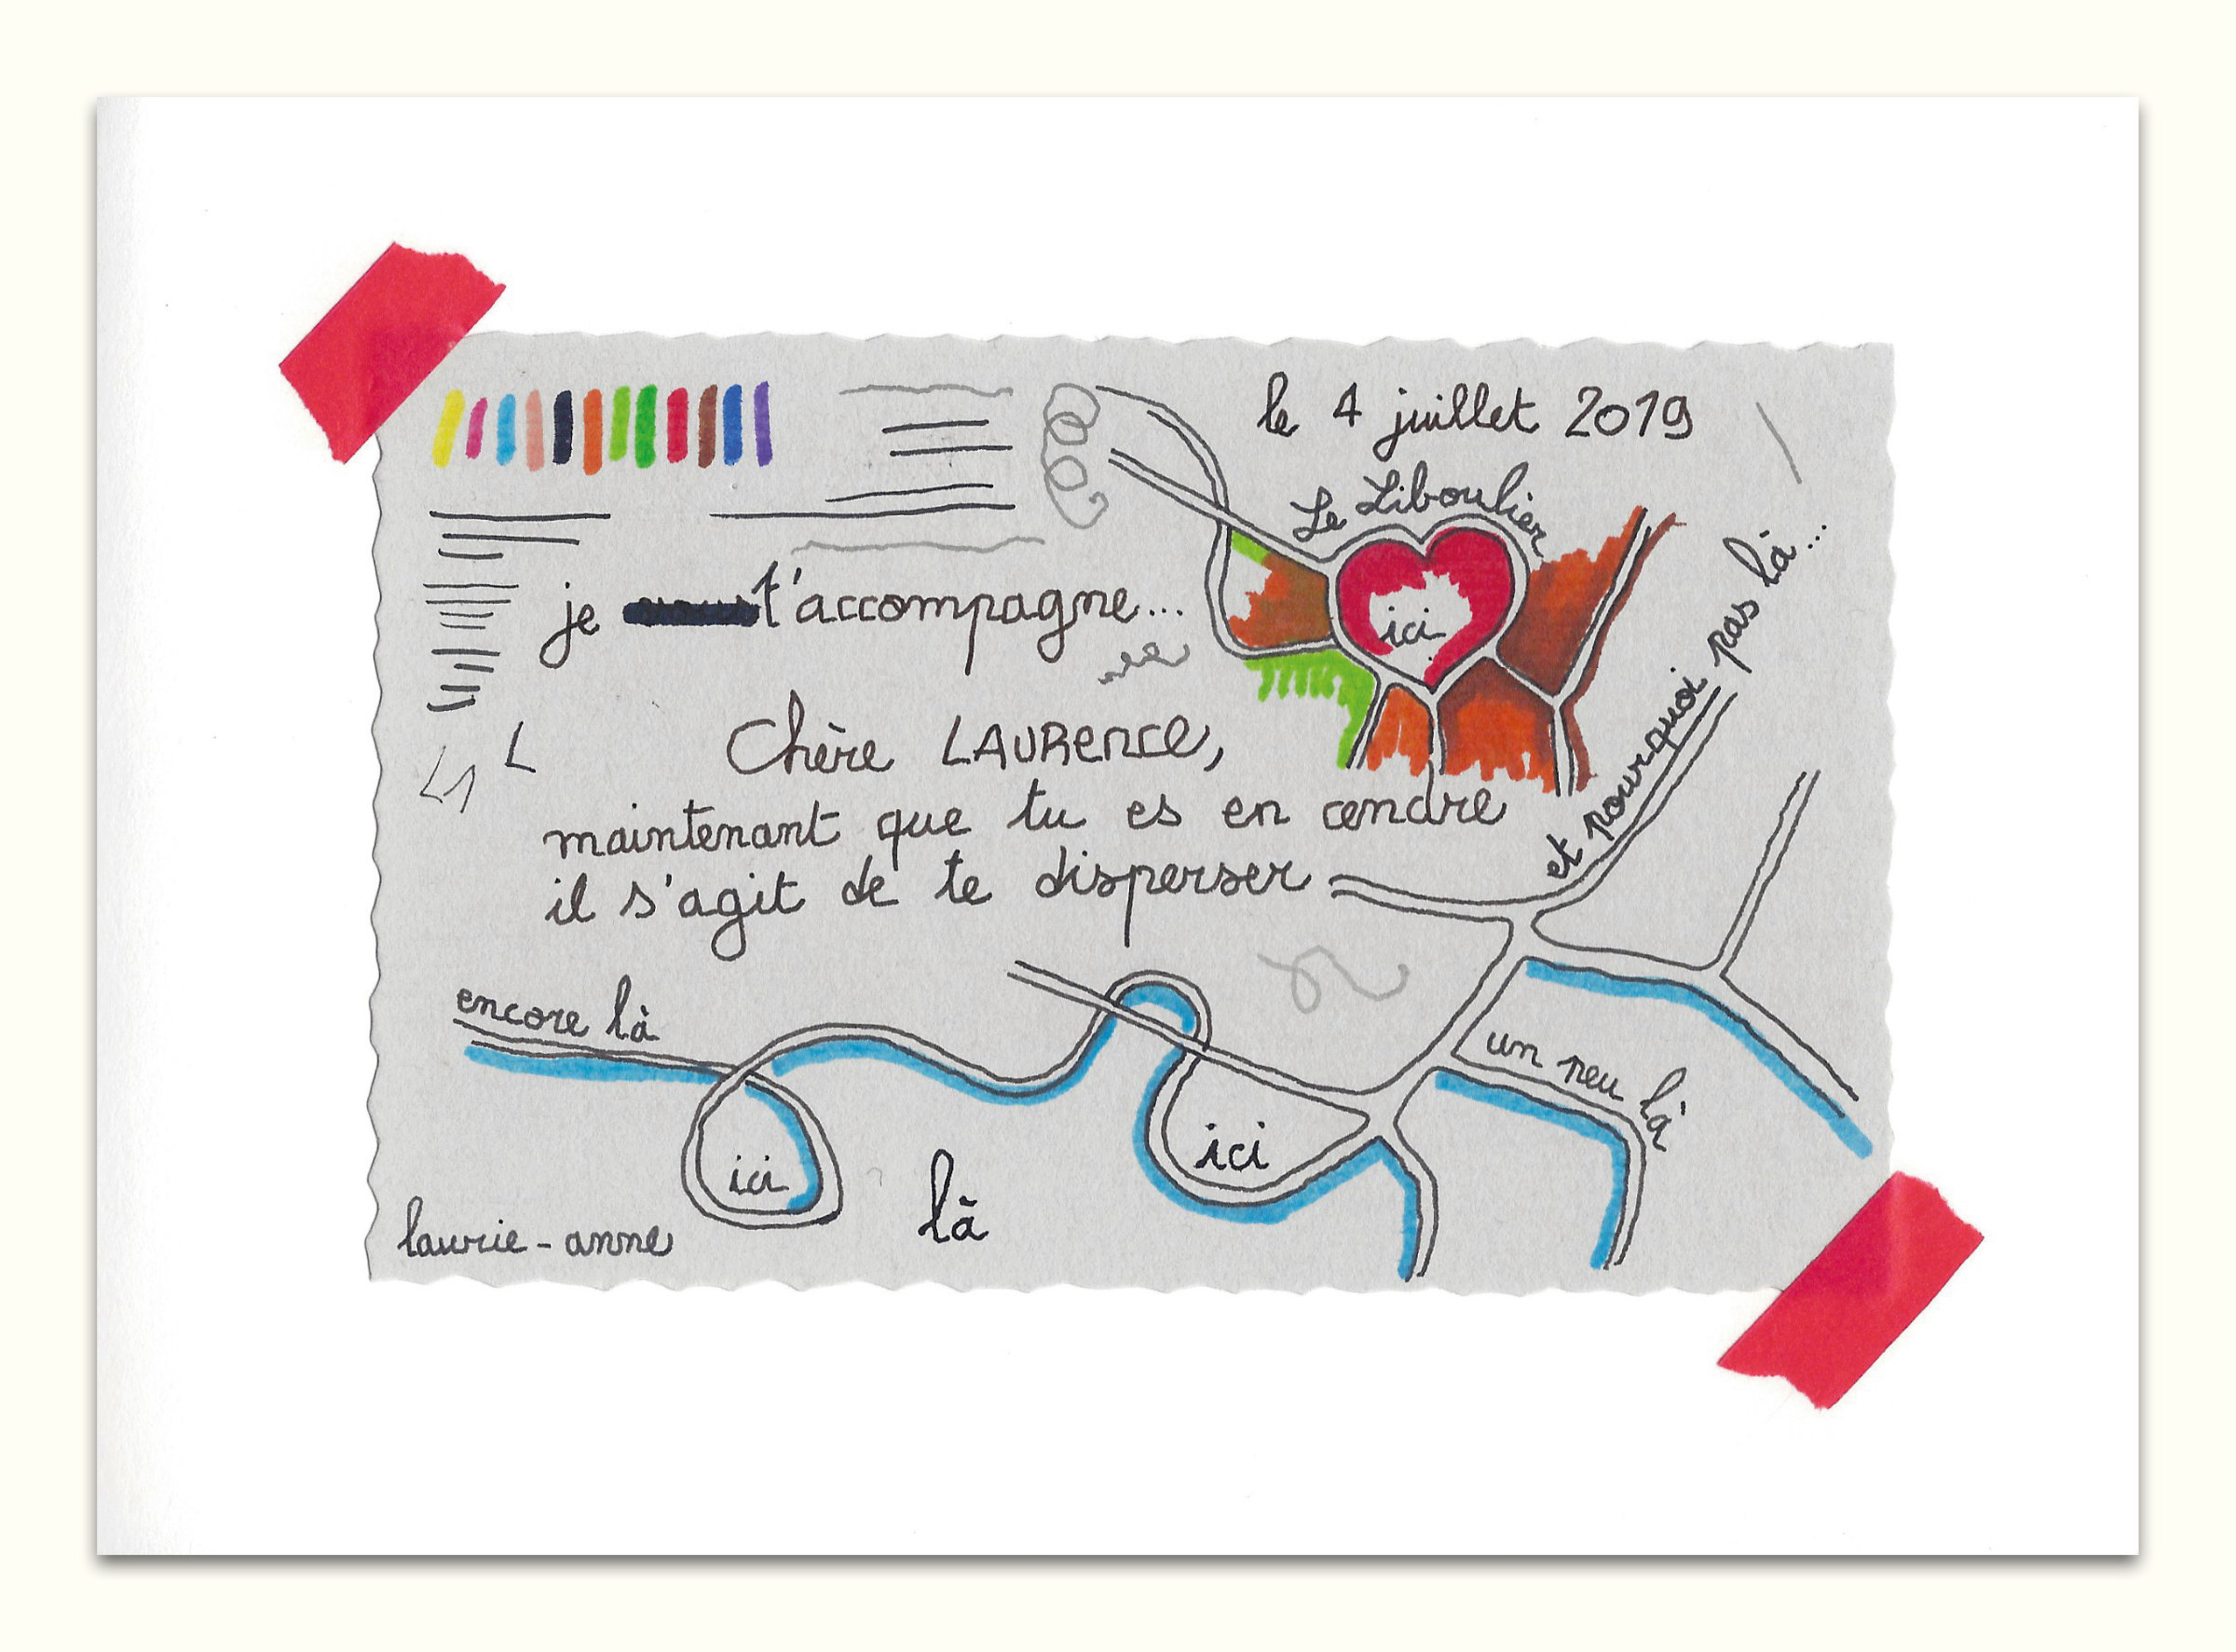 le 4 juillet 2019
Le Liboulier
ici
je t'accompagne...
et pourquoi pas là...
Chère LAURence,
maintenant que tu es en cendre
il s'agit de te disperser
encore là
un peu là
ici
ici
là
laurie-anne